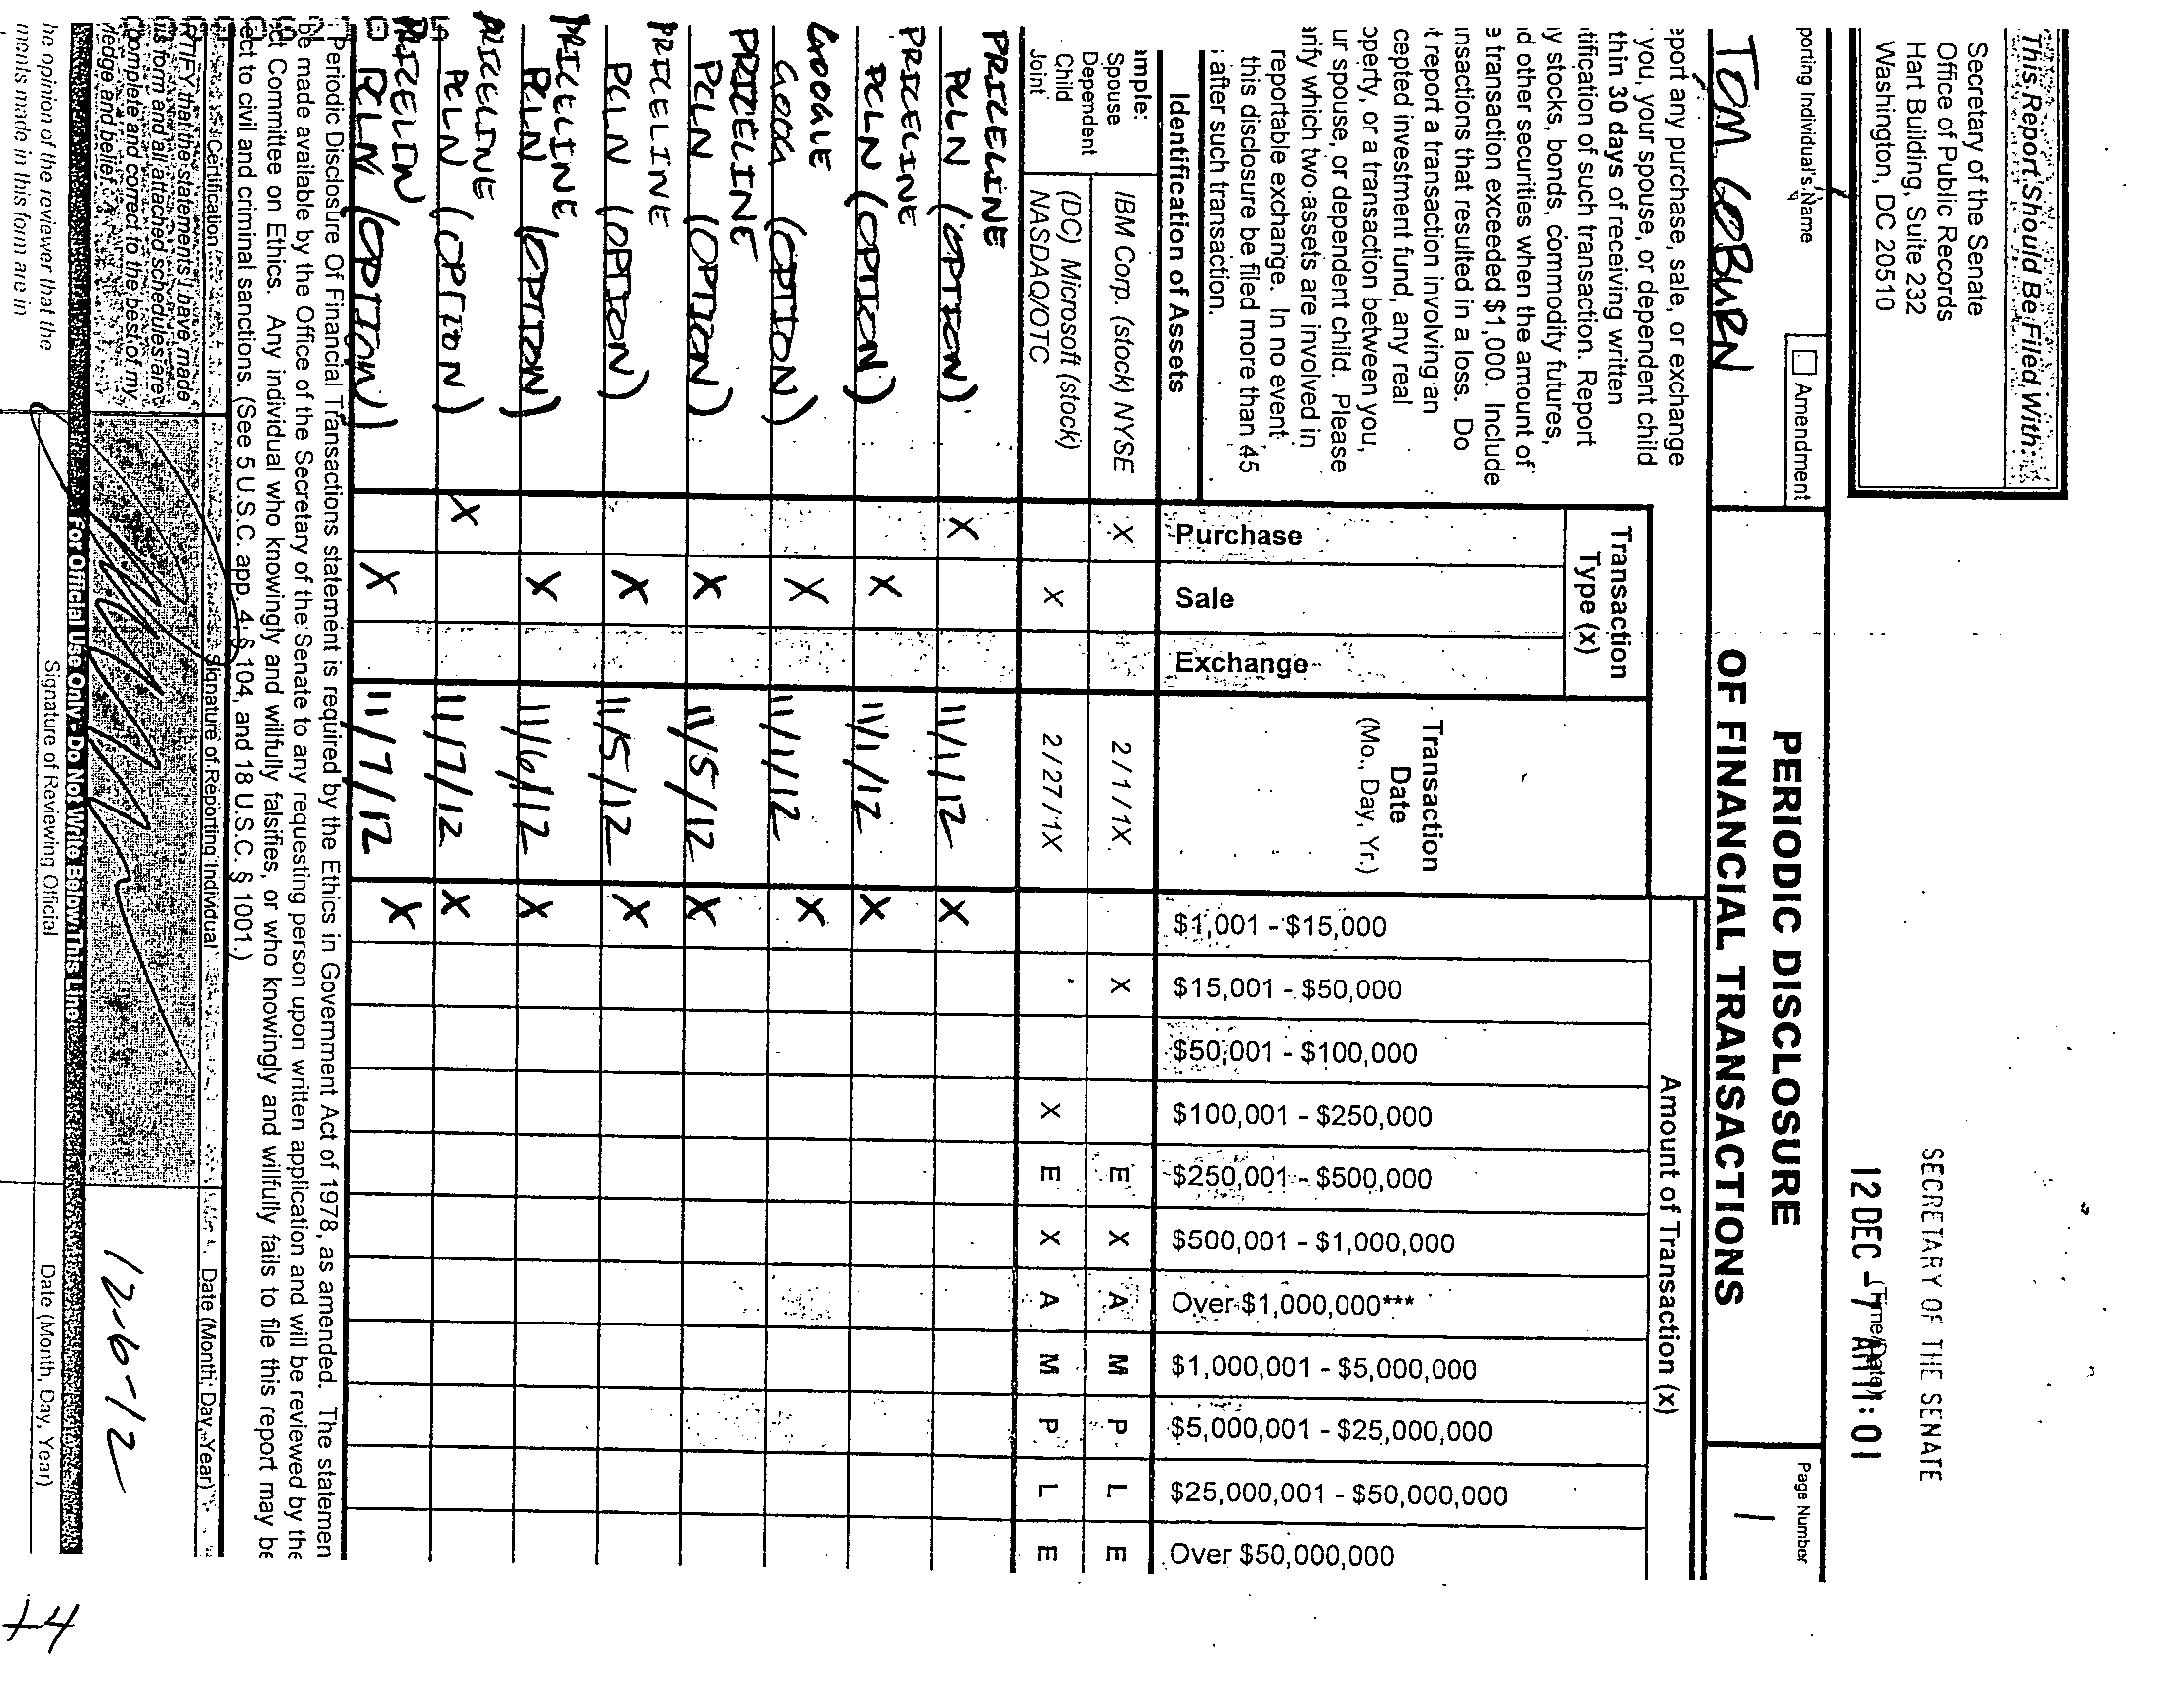 This Report Should Be Filed With:
Secretary of the Senate
Office of Public Records
Hart Building, Suite 232
Washington, DC 20510
SECRETARY OF THE SENATE
12 DEC -7 AM 11:01
porting Individual's Name
Amendment
TOM COBURN
PERIODIC DISCLOSURE
OF FINANCIAL TRANSACTIONS
Page Number
1
eport any purchase, sale, or exchange
you, your spouse, or dependent child
thin 30 days of receiving written
tification of such transaction. Report
y stocks, bonds, commodity futures,
d other securities when the amount of
e transaction exceeded $1,000. Include
nsactions that resulted in a loss. Do
t report a transaction involving an
cepted investment fund, any real
operty, or a transaction between you,
ur spouse, or dependent child. Please
arify which two assets are involved in
reportable exchange. In no event
this disclosure be filed more than 45
after such transaction.
Identification of Assets
Transaction
Type (x)
Purchase
Sale
Exchange
Transaction
Date
(Mo., Day, Yr.)
Amount of Transaction (x)
$1,001 - $15,000
$15,001 - $50,000
$50,001 - $100,000
$100,001 - $250,000
$250,001 - $500,000
$500,001 - $1,000,000
Over $1,000,000***
$1,000,001 - $5,000,000
$5,000,001 - $25,000,000
$25,000,001 - $50,000,000
Over $50,000,000
mple:
Spouse
Dependent
Child
Joint
IBM Corp. (stock) NYSE X 2/1/1X X E X A M P L E
(DC) Microsoft (stock)
NASDAQ/OTC X 2/27/1X X E X A M P L E
PRICELINE
PCLN (OPTION) X 11/1/12 X
PRICELINE
PCLN (OPTION) X 11/1/12 X
GOOGLE
GOOG (OPTION) X 11/1/12 X
PRICELINE
PCLN (OPTION) X 11/5/12 X
PRICELINE
PCLN (OPTION) X 11/5/12 X
PRICELINE
PCLN (OPTION) X 11/6/12 X
PRICELINE
PCLN (OPTION) X 11/7/12 X
PRICELIN
PCLN (OPTION) X 11/7/12 X
Periodic Disclosure Of Financial Transactions statement is required by the Ethics in Government Act of 1978, as amended. The statemen
be made available by the Office of the Secretary of the Senate to any requesting person upon written application and will be reviewed by the
ct Committee on Ethics. Any individual who knowingly and willfully falsifies, or who knowingly and willfully fails to file this report may be
ect to civil and criminal sanctions. (See 5 U.S.C. app. 4, § 104, and 18 U.S.C. § 1001.)
Certification
Signature of Reporting Individual
Date (Month, Day, Year)
RTIFY that the statements I have made
is form and all attached schedules are
complete and correct to the best of my
ledge and belief.
12-6-12
For Official Use Only - Do Not Write Below This Line
he opinion of the reviewer that the
ments made in this form are in
Signature of Reviewing Official
Date (Month, Day, Year)